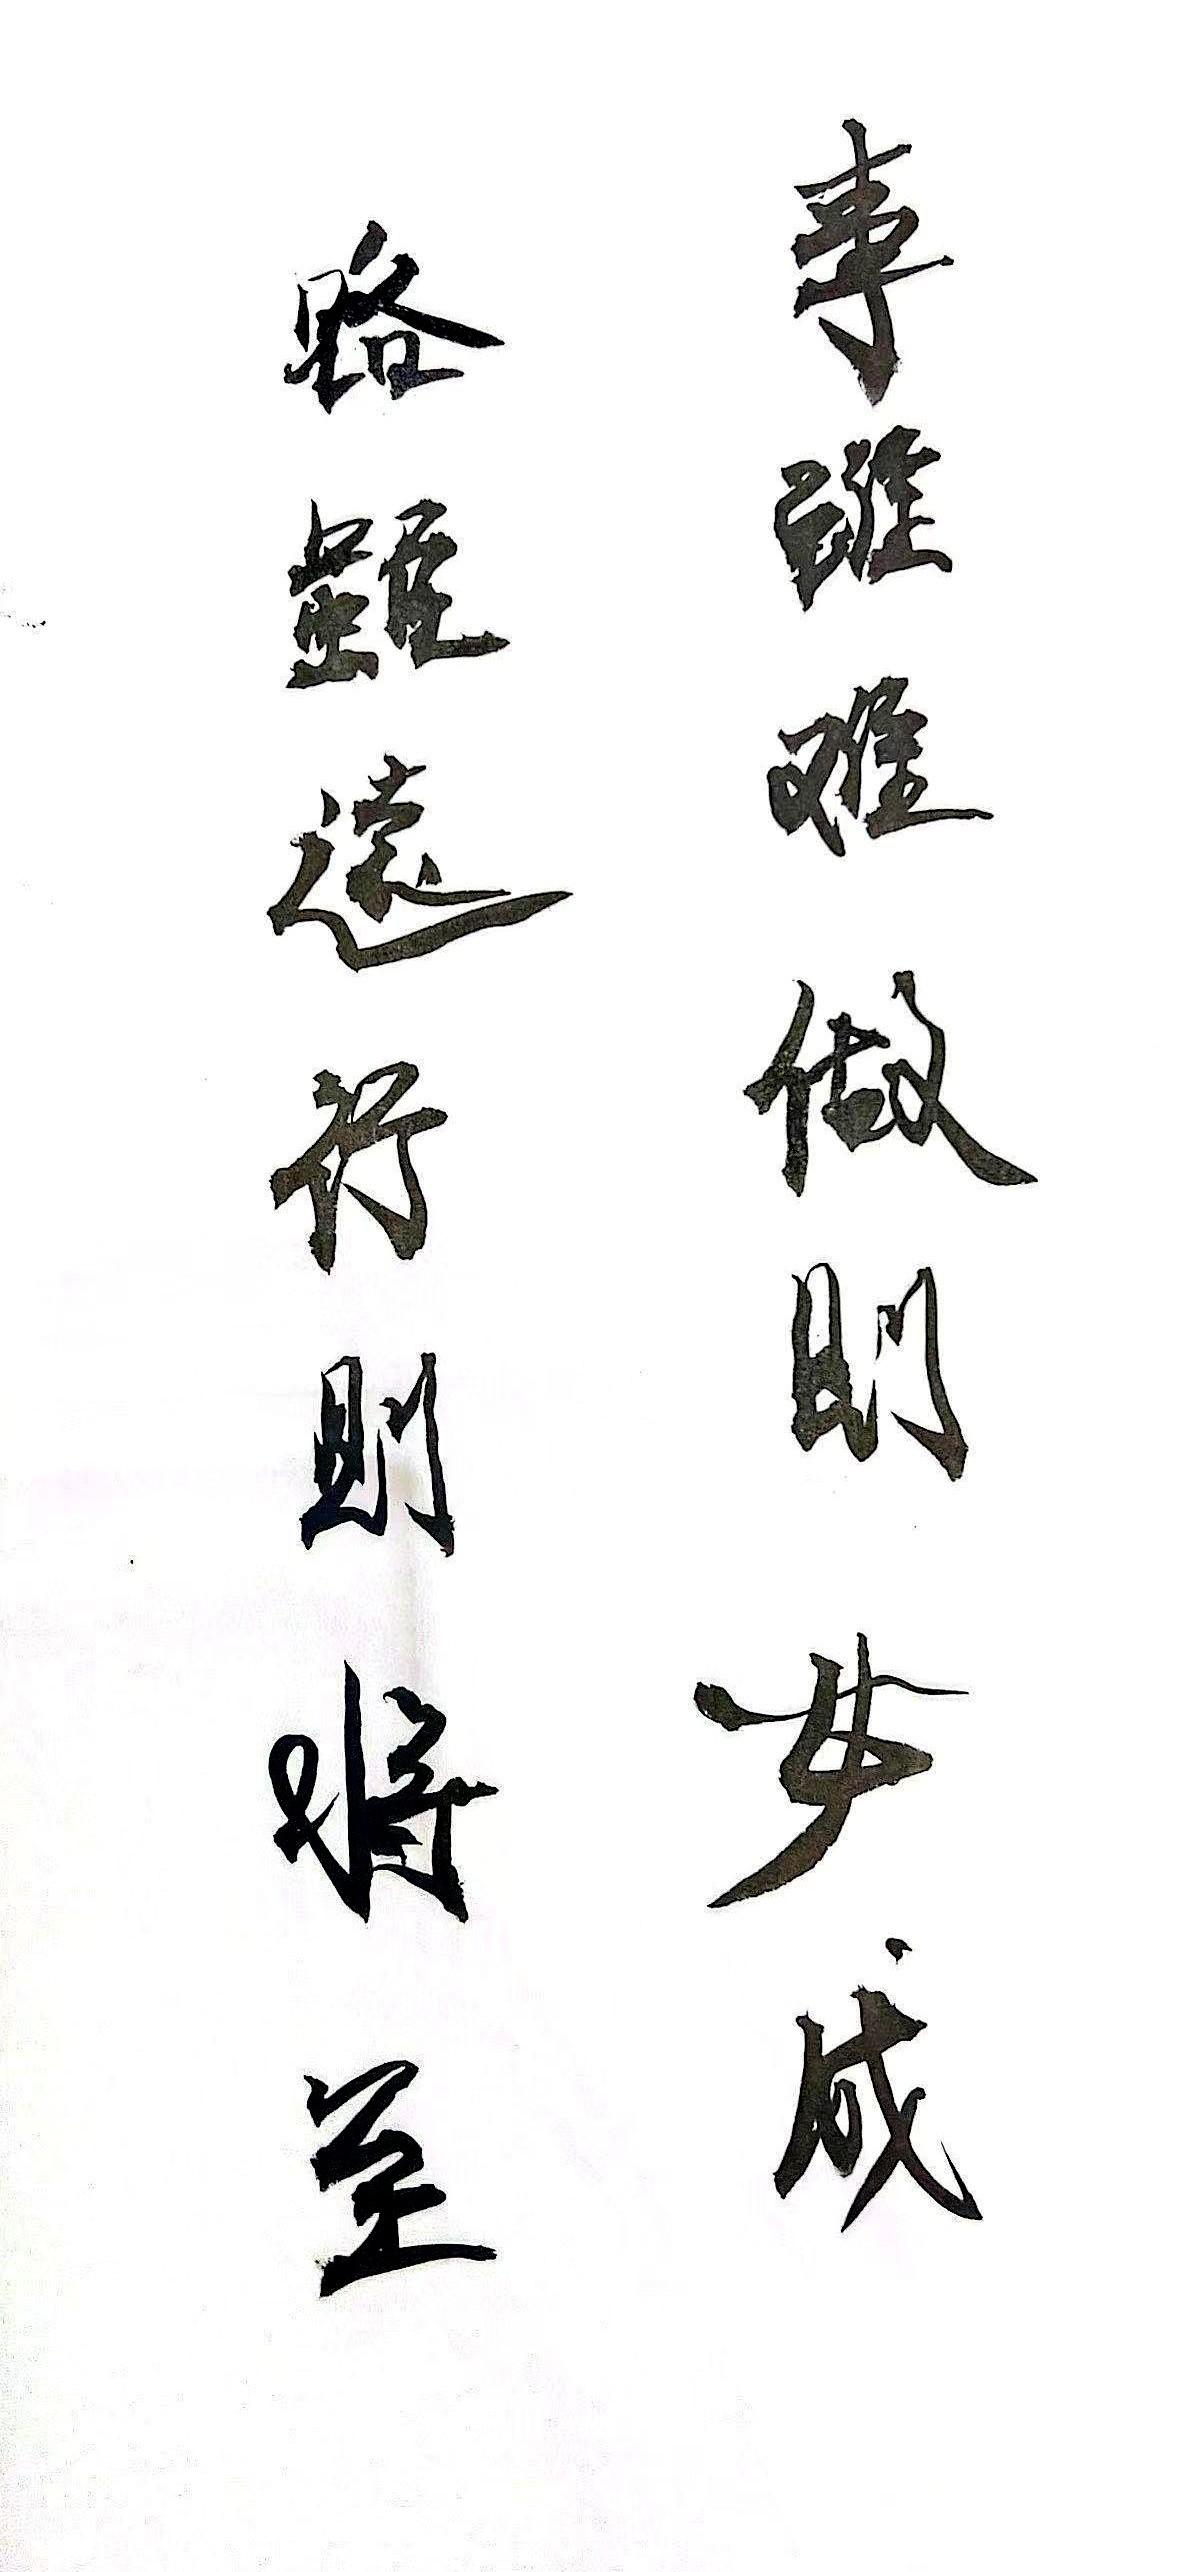 事雖难做則必成
路雖遠行則將至